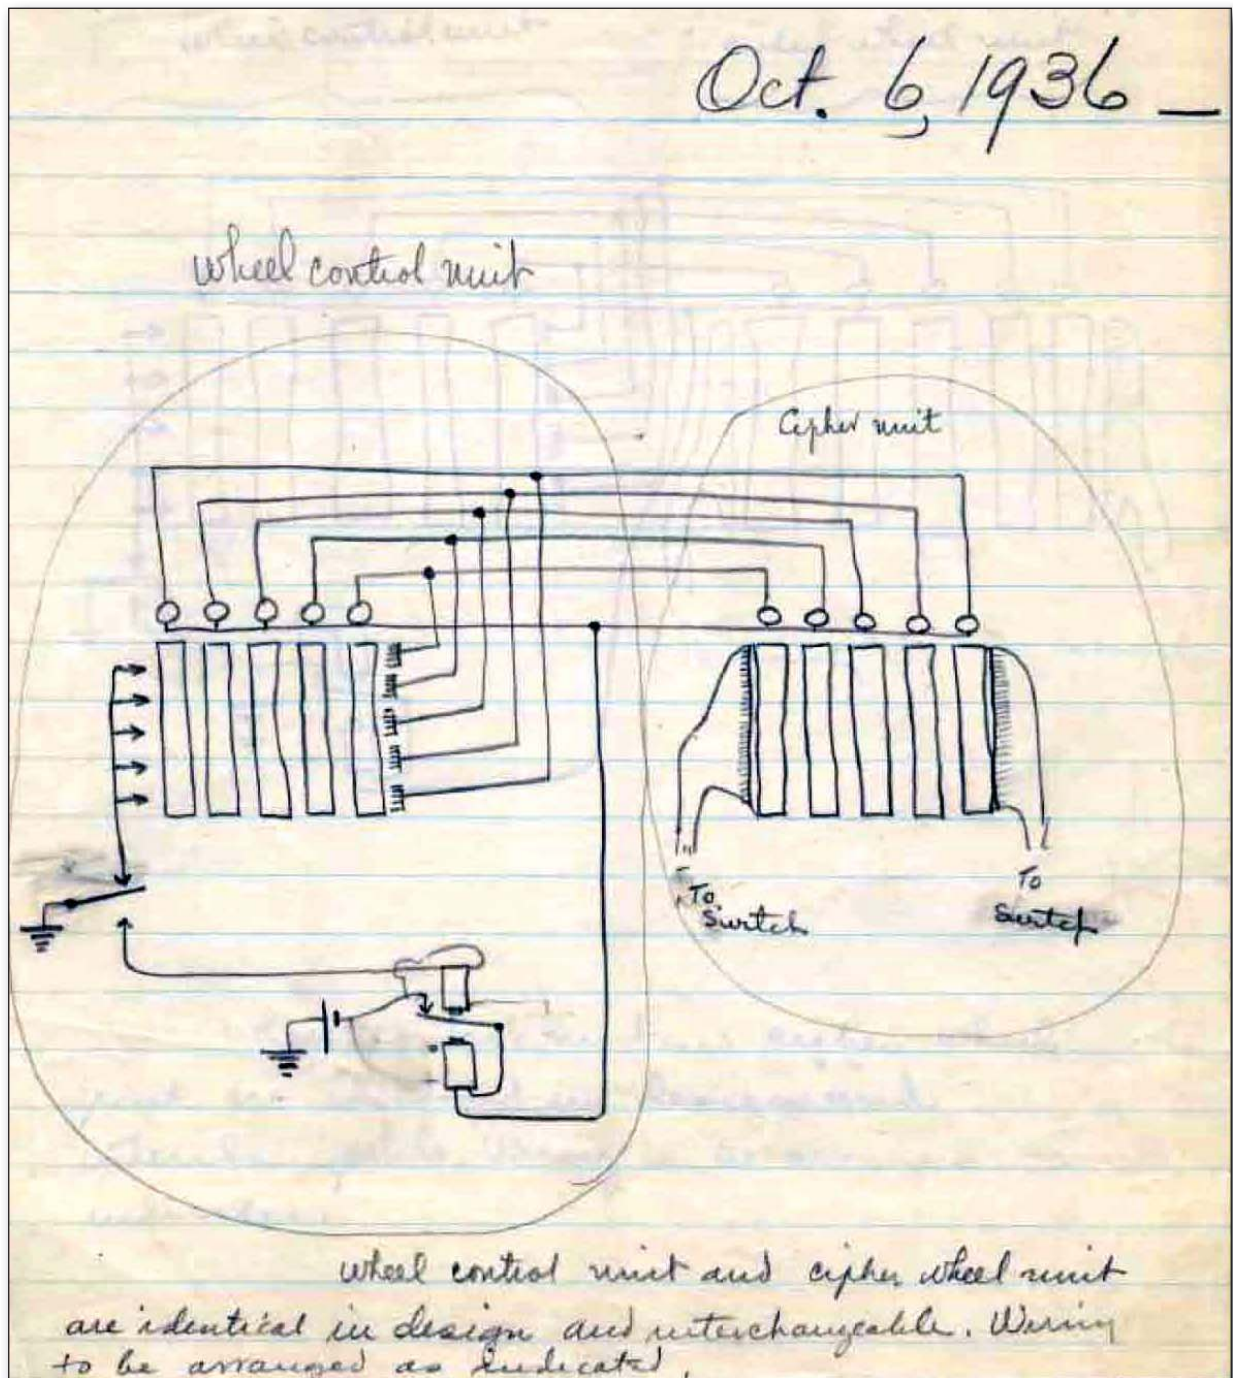 Oct. 6, 1936 —
wheel control unit
Cipher unit
To
Switch
To
Switch
wheel control unit and cipher wheel unit
are identical in design and interchangeable. Wiring
to be arranged as indicated.